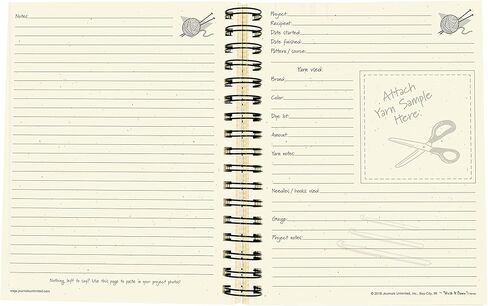 Notes:
Nothing left to say? Use this page to paste in your project photos!
www.journalsunlimited.com
Project:
Recipient:
Date started:
Date finished:
Pattern / source:
Yarn used:
Brand:
Color:
Dye lot:
Amount:
Yarn notes:
Attach
Yarn Sample
Here.
Needles / hooks used:
Gauge:
Project notes:
Journals Unlimited, Inc., Bay City, MI "Write it Down"